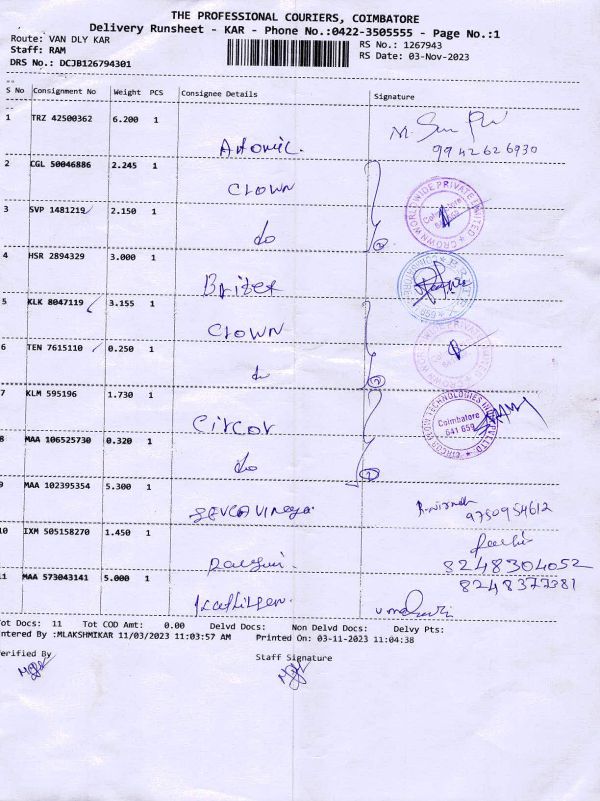 THE PROFESSIONAL COURIERS, COIMBATORE
Delivery Runsheet - KAR - Phone No.:0422-3505555 - Page No.:1
Route: VAN DLY KAR RS No.: 1267943
Staff: RAM RS Date: 03-Nov-2023
DRS No.: DCJB126794301
S No Consignment No Weight PCS Consignee Details Signature
1 TRZ 42500362 6.200 1
Atomic. 9942626930
2 CGL 50046886 2.245 1
Crown
3 SVP 1481219 2.150 1
do
4 HSR 2894329 3.000 1
5 KLK 8047119 3.155 1
Crown
6 TEN 7615110 0.250 1
do
7 KLM 595196 1.730 1
Circor
Coimbatore
641 659
8 MAA 106525730 0.320 1
do
9 MAA 102395354 5.300 1
9750954612
10 IXM 505158270 1.450 1
8248304052
11 MAA 573043141 5.000 1
8248377381
Tot Docs: 11 Tot COD Amt: 0.00 Delvd Docs: Non Delvd Docs: Delvy Pts:
ntered By :MLAKSHMIKAR 11/03/2023 11:03:57 AM Printed On: 03-11-2023 11:04:38
erified By Staff Signature